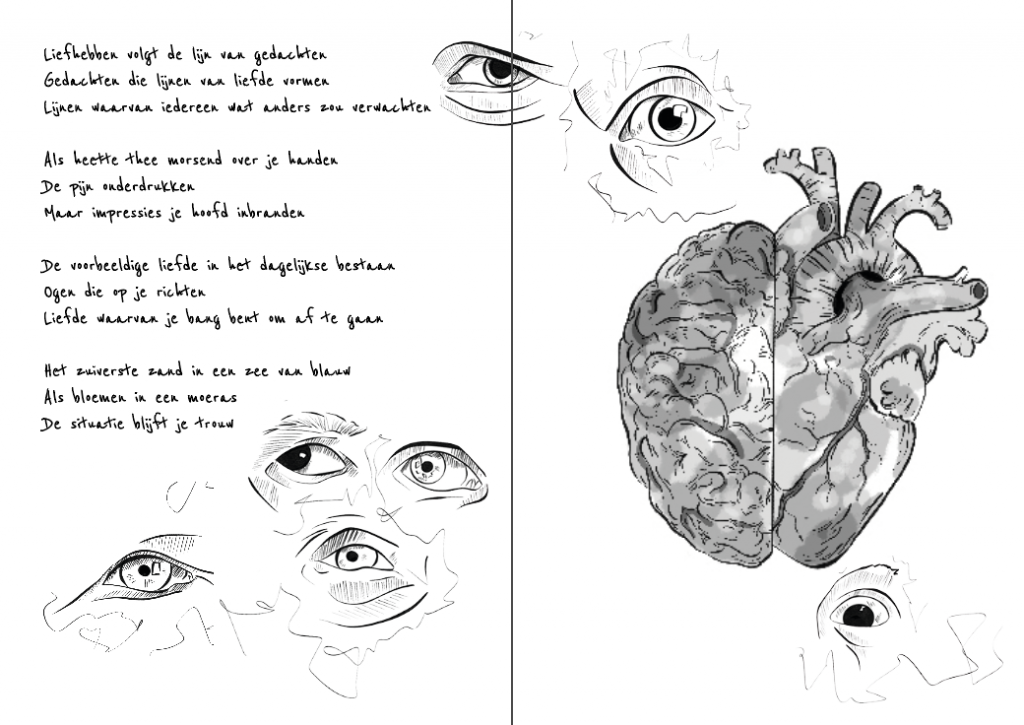 Liefhebben volgt de lijn van gedachten
Gedachten die lijnen van liefde vormen
Lijnen waarvan iedereen wat anders zou verwachten
Als heette thee morsend over je handen
De pijn onderdrukken
Maar impressies je hoofd inbranden
De voorbeeldige liefde in het dagelijkse bestaan
Ogen die op je richten
Liefde waarvan je bang bent om af te gaan
Het zuiverste zand in een zee van blauw
Als bloemen in een moeras
De situatie blijft je trouw